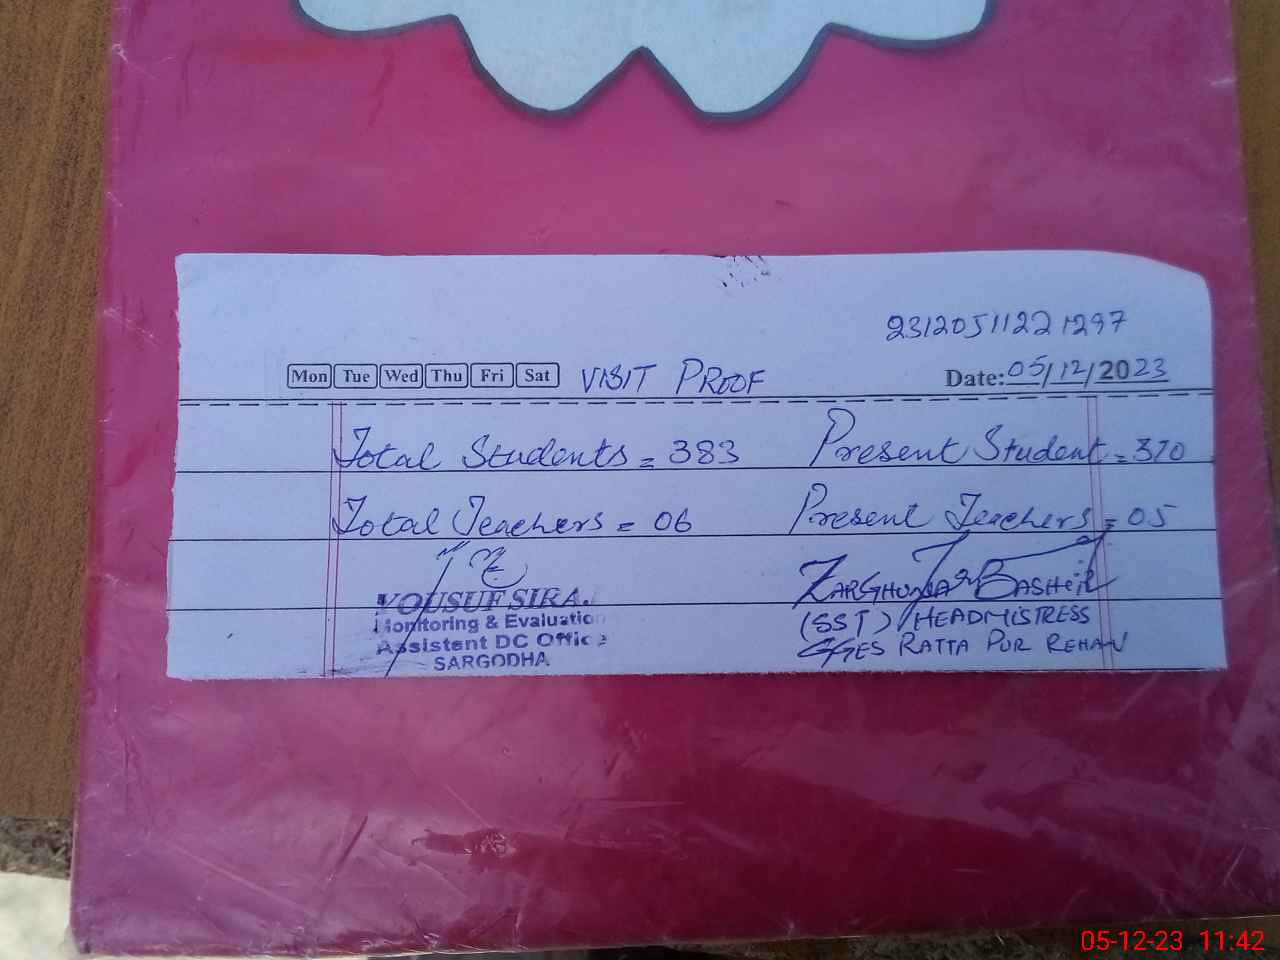 23120511221297
Mon Tue Wed Thu Fri Sat VISIT PROOF Date: 05/12/2023
Total Students = 383 Present Student = 370
Total Teachers = 06 Present Teachers = 05
YOUSUF SIRA
Monitoring & Evaluation
Assistent DC Office
SARGODHA
BASHEIR
(SST) / HEADMISTRESS
GGES RATTA PUR REHAN
05-12-23 11:42